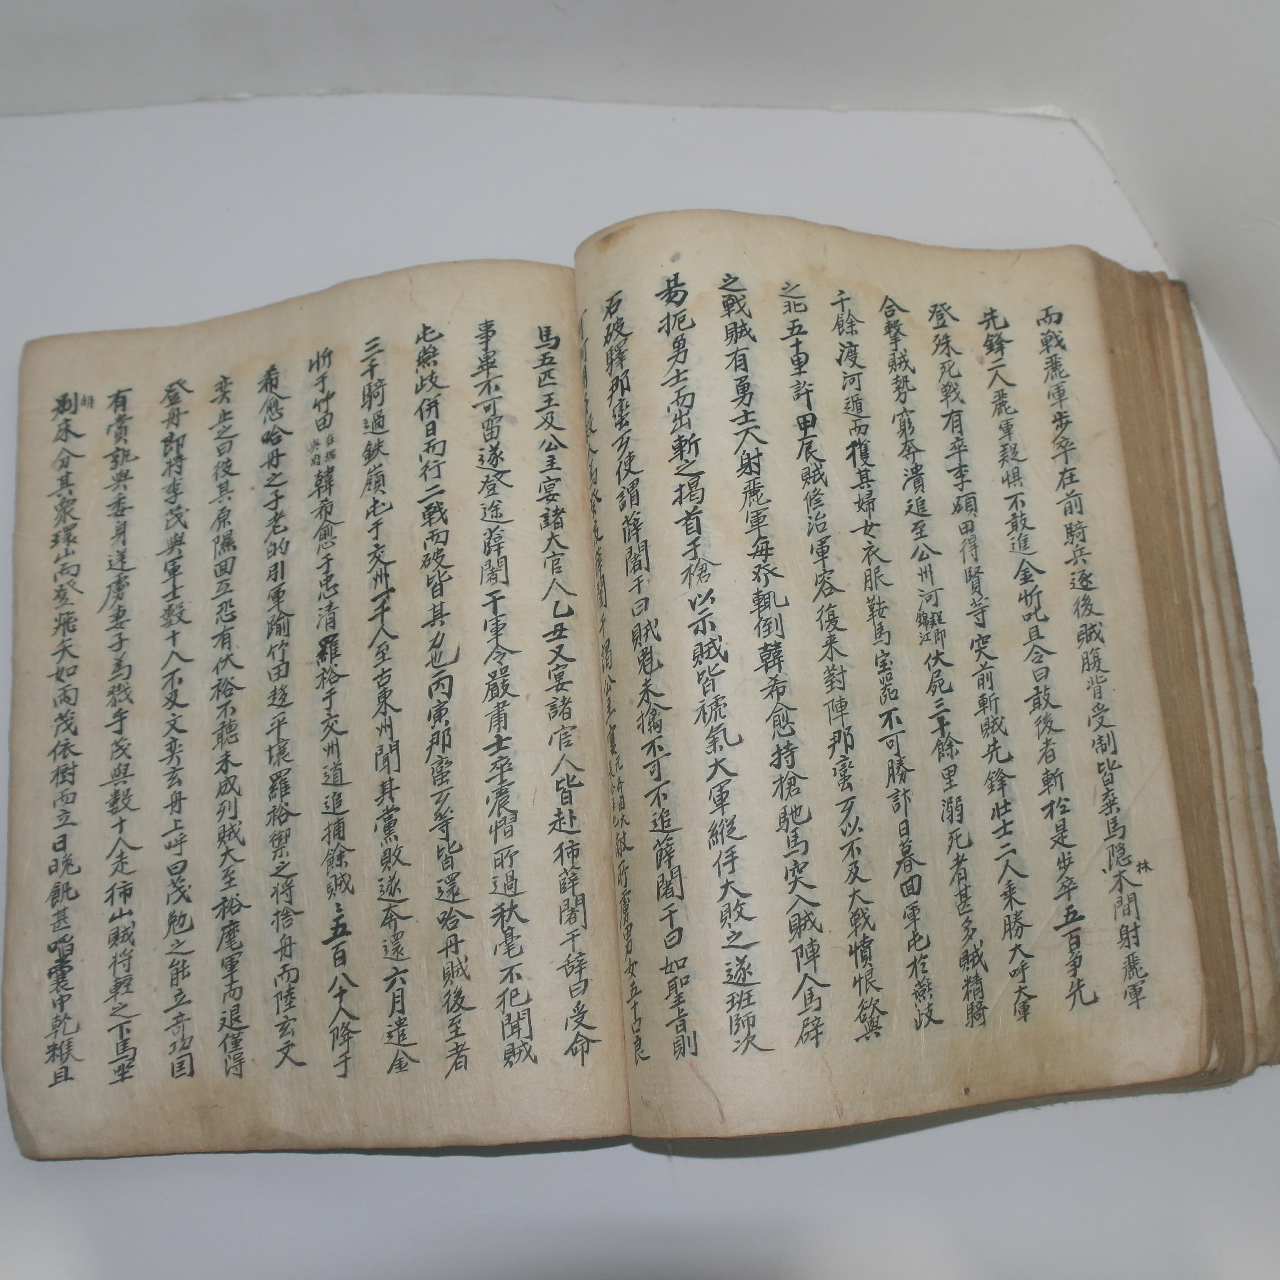 而戰麗軍步卒在前騎兵逐後賊腹背受制皆棄馬隱木間射麗軍
林
先鋒二人麗軍疑惧不敢進金忻叱且令曰敢後者斬於是步卒五百爭先
登殊死戰有卒李碩田得賢等突前斬賊先鋒壯士二人乘勝大呼大軍
合擊賊勢窮奔潰追至公州河錦江伏屍三十餘里溺死者甚多賊精騎
千餘渡河遁而獲其婦女衣服鞍馬宝器不可勝計日暮回軍屯於燕歧
之北五十里許甲辰賊修治軍容復来對陣那蛮歹以不及大戰憤恨欲與
之戰賊有勇士大射麗軍每發輒倒韓希愈持槍馳馬突入賊陣人馬辟
易扼勇士而出斬之揭首于槍以示賊皆褫氣大軍縱擊大敗之遂班師次
石破驛那蛮歹使謂薛闍干曰賊魁未擒不可不追薛闍干曰如聖旨則
男女五十口良
馬五匹王及公主宴諸大官人乙丑又宴諸官人皆赴薛闍干辞曰受命
事畢不可留遂登途薛闍干軍令嚴肅士卒震慴所過秋毫不犯聞賊
屯燕歧併日而行二戰而破皆其力也丙寅那蛮歹等皆還哈丹賊後至者
三千騎過鉄嶺屯于交州一千人至古東州聞其黨敗遂奔還六月遣金
忻于竹田韓希愈于忠清羅裕于交州道追捕餘賊五百八十人降于
希愈哈丹之子老的引軍踰竹田趍平壤羅裕禦之将捨舟而陸玄文
奕止之曰彼其原隰回互恐有伏裕不聽未成列賊大至裕麾軍而退僅得
登舟即将李茂與軍士數十人不及文奕玄舟上呼曰茂勉之能立奇功国
有賞孰與委身逆虜妻子為戮乎茂與數十人走山賊将輕之下馬坐
胡
床分其衆環山而登飛矢如雨茂依樹而立日晚飢甚啗囊中乾糇且